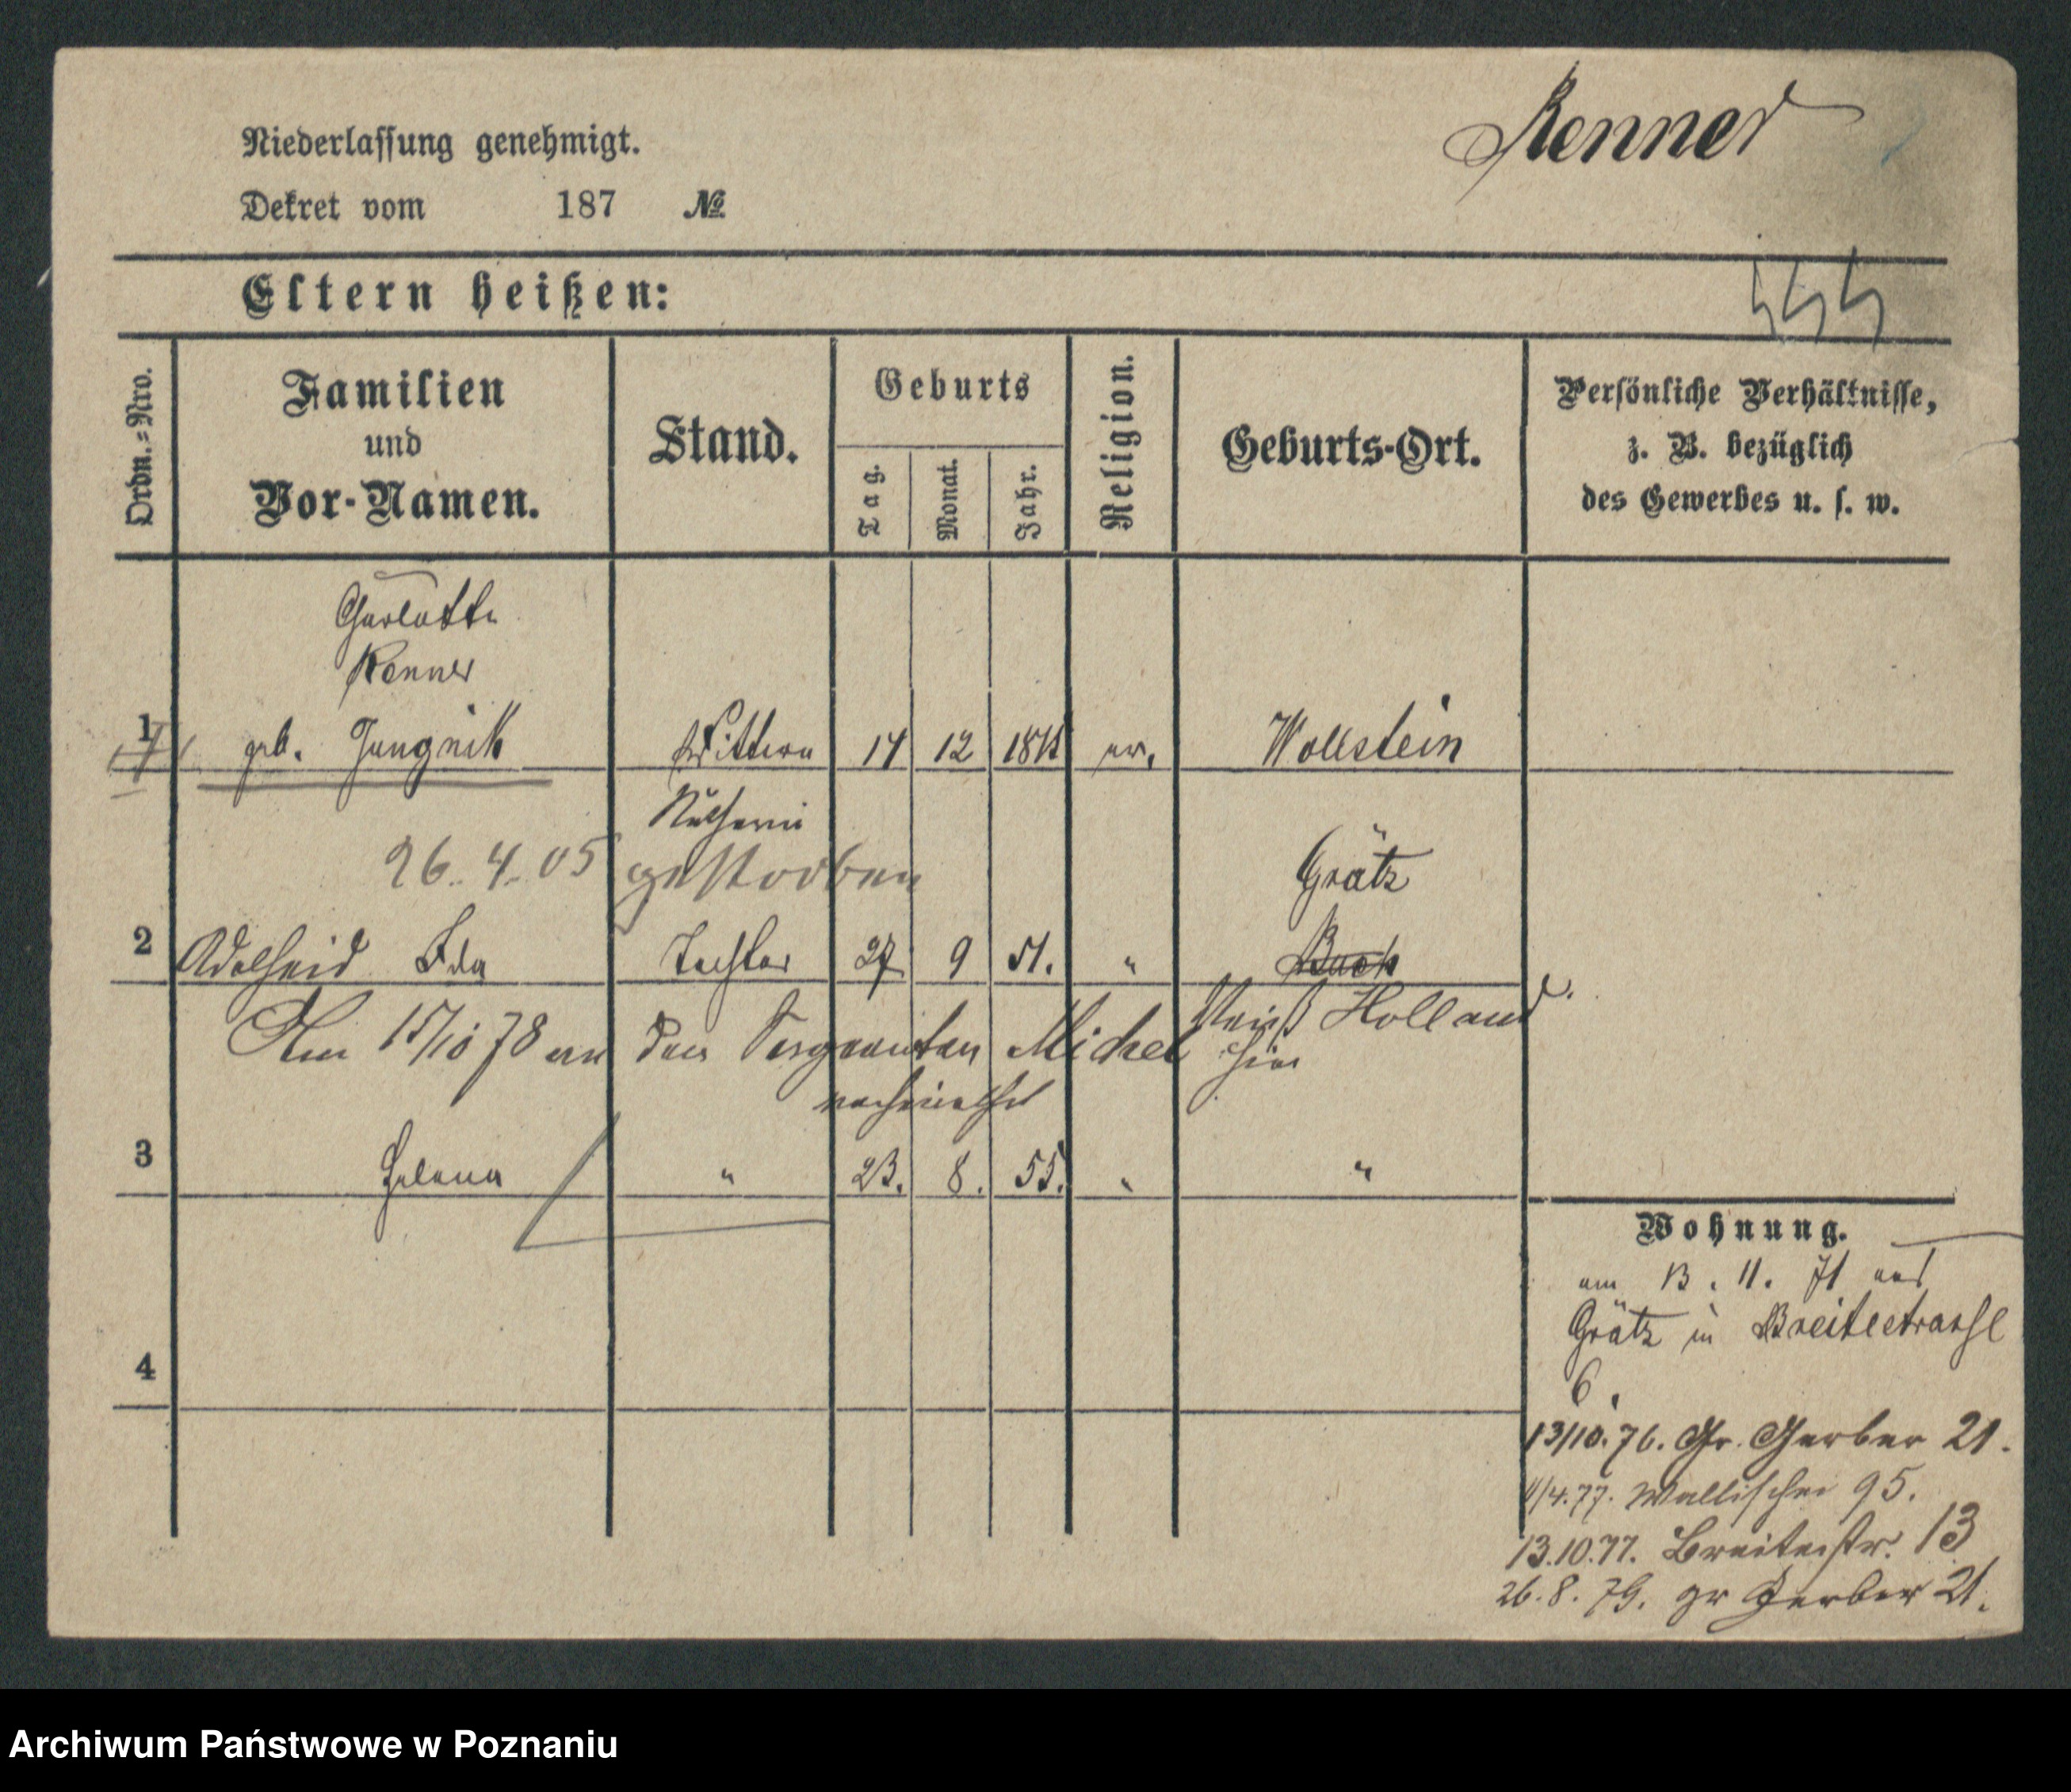 Renner
Niederlassung genehmigt.
Dekret vom 187 №
Eltern heißen:
Ordn.-Nro.
Familien
und
Vor-Namen.
Stand.
Geburts
Tag.
Monat.
Jahr.
Religion.
Geburts-Ort.
Persönliche Verhältnisse,
z. B. bezüglich
des Gewerbes u. s. w.
Charlotte
Renner
1 geb. Jungnik Wittwe 14 12 ev. Wollstein
Nätherin
26.4.05 gestorben Grätz
2 Adelheid Ida Tochter 27 9 51. " Buck
Am 15/10 78 an den Sergeanten Michel Holland
hier
verheirathet
3 Helena " 23. 8. 55. " "
Wohnung.
am 13. 11. 71 aus
Grätz in Breitestrasse
6.
4
13/10. 76. Gr. Gerber 21.
/4. 77. Wallischei 95.
13.10.77. Breitestr. 13
26. 8. 79. gr Gerber 21.
Archiwum Państwowe w Poznaniu